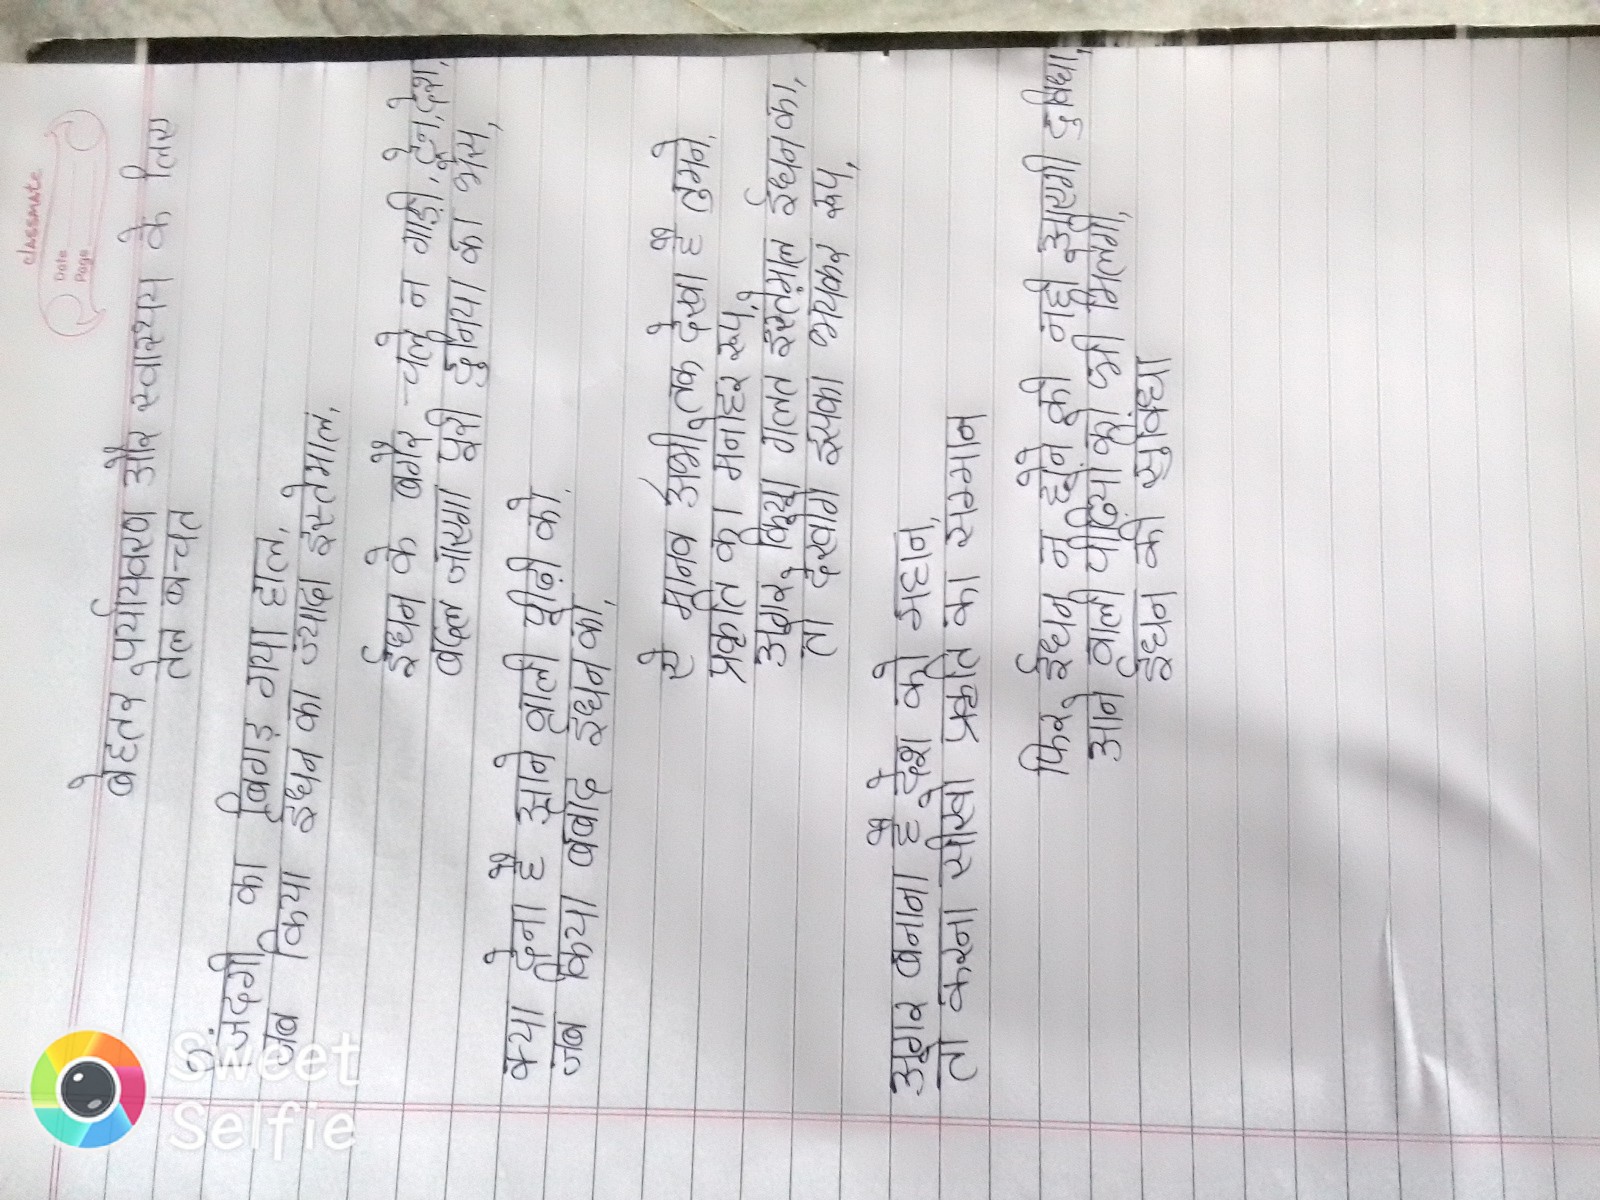 classmate
Date
Page
बेहतर पर्यायवरण और स्वास्थय के लिए
तेल बचत
जिंदगी का बिगड़ गया हाल,
जब किया इंधन का ज्यादा इस्तेमाल,
ईंधन के बगैर चले न गाड़ी, ट्रेन, देश,
बदल जाएगा पूरी दुनिया का भेस,
क्या देना है आने वाली पीढ़ी को,
जब किया बर्बाद इंधन को,
ऐ मानव अभी तक देखा है तुमने,
प्रकृति का मनोहर रूप,
अगर किया गलत इस्तेमाल ईंधन का,
तो देखोगे इसका भयंकर रूप,
अगर बनाना है देश को महान,
तो करना सीखो प्रकृति का सम्मान
फिर ईंधन न होने की नही आएगी दुविधा,
आने वाली पीढ़ियों को भी मिलेगी,
इंधन की सुविधा
Sweet
Selfie